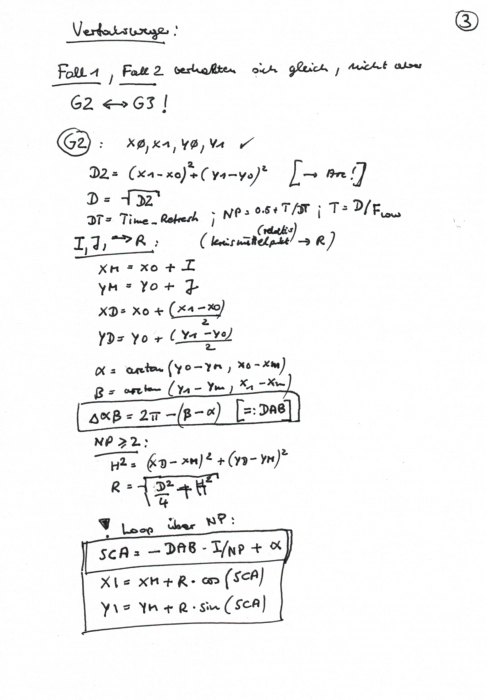 ③
Verfahrwege:
Fall 1, Fall 2 verhalten sich gleich, nicht aber
G2 ↔ G3!
G2: XØ, X1, YØ, Y1 ✓
D2 = (X1-X0)² + (Y1-Y0)² [→ Arc!]
D = √D2
DT = Time_Refresh ; NP = 0.5 + T/DT ; T = D/F
I, J, → R: (Kreismittelpkt → R)
(relativ)
XM = X0 + I
YM = Y0 + J
XD = X0 + (X1-X0)/2
YD = Y0 + (Y1-Y0)/2
α = arctan (Y0-YM, X0-XM)
β = arctan (Y1-YM, X1-XM)
ΔαB = 2π - (β-α) [=: DAB]
NP ≥ 2:
H² = (XD-XM)² + (YD-YM)²
R = √D²/4 + H²
Loop über NP:
SCA = -DAB · I/NP + α
XI = XM + R · cos (SCA)
YI = YM + R · sin (SCA)